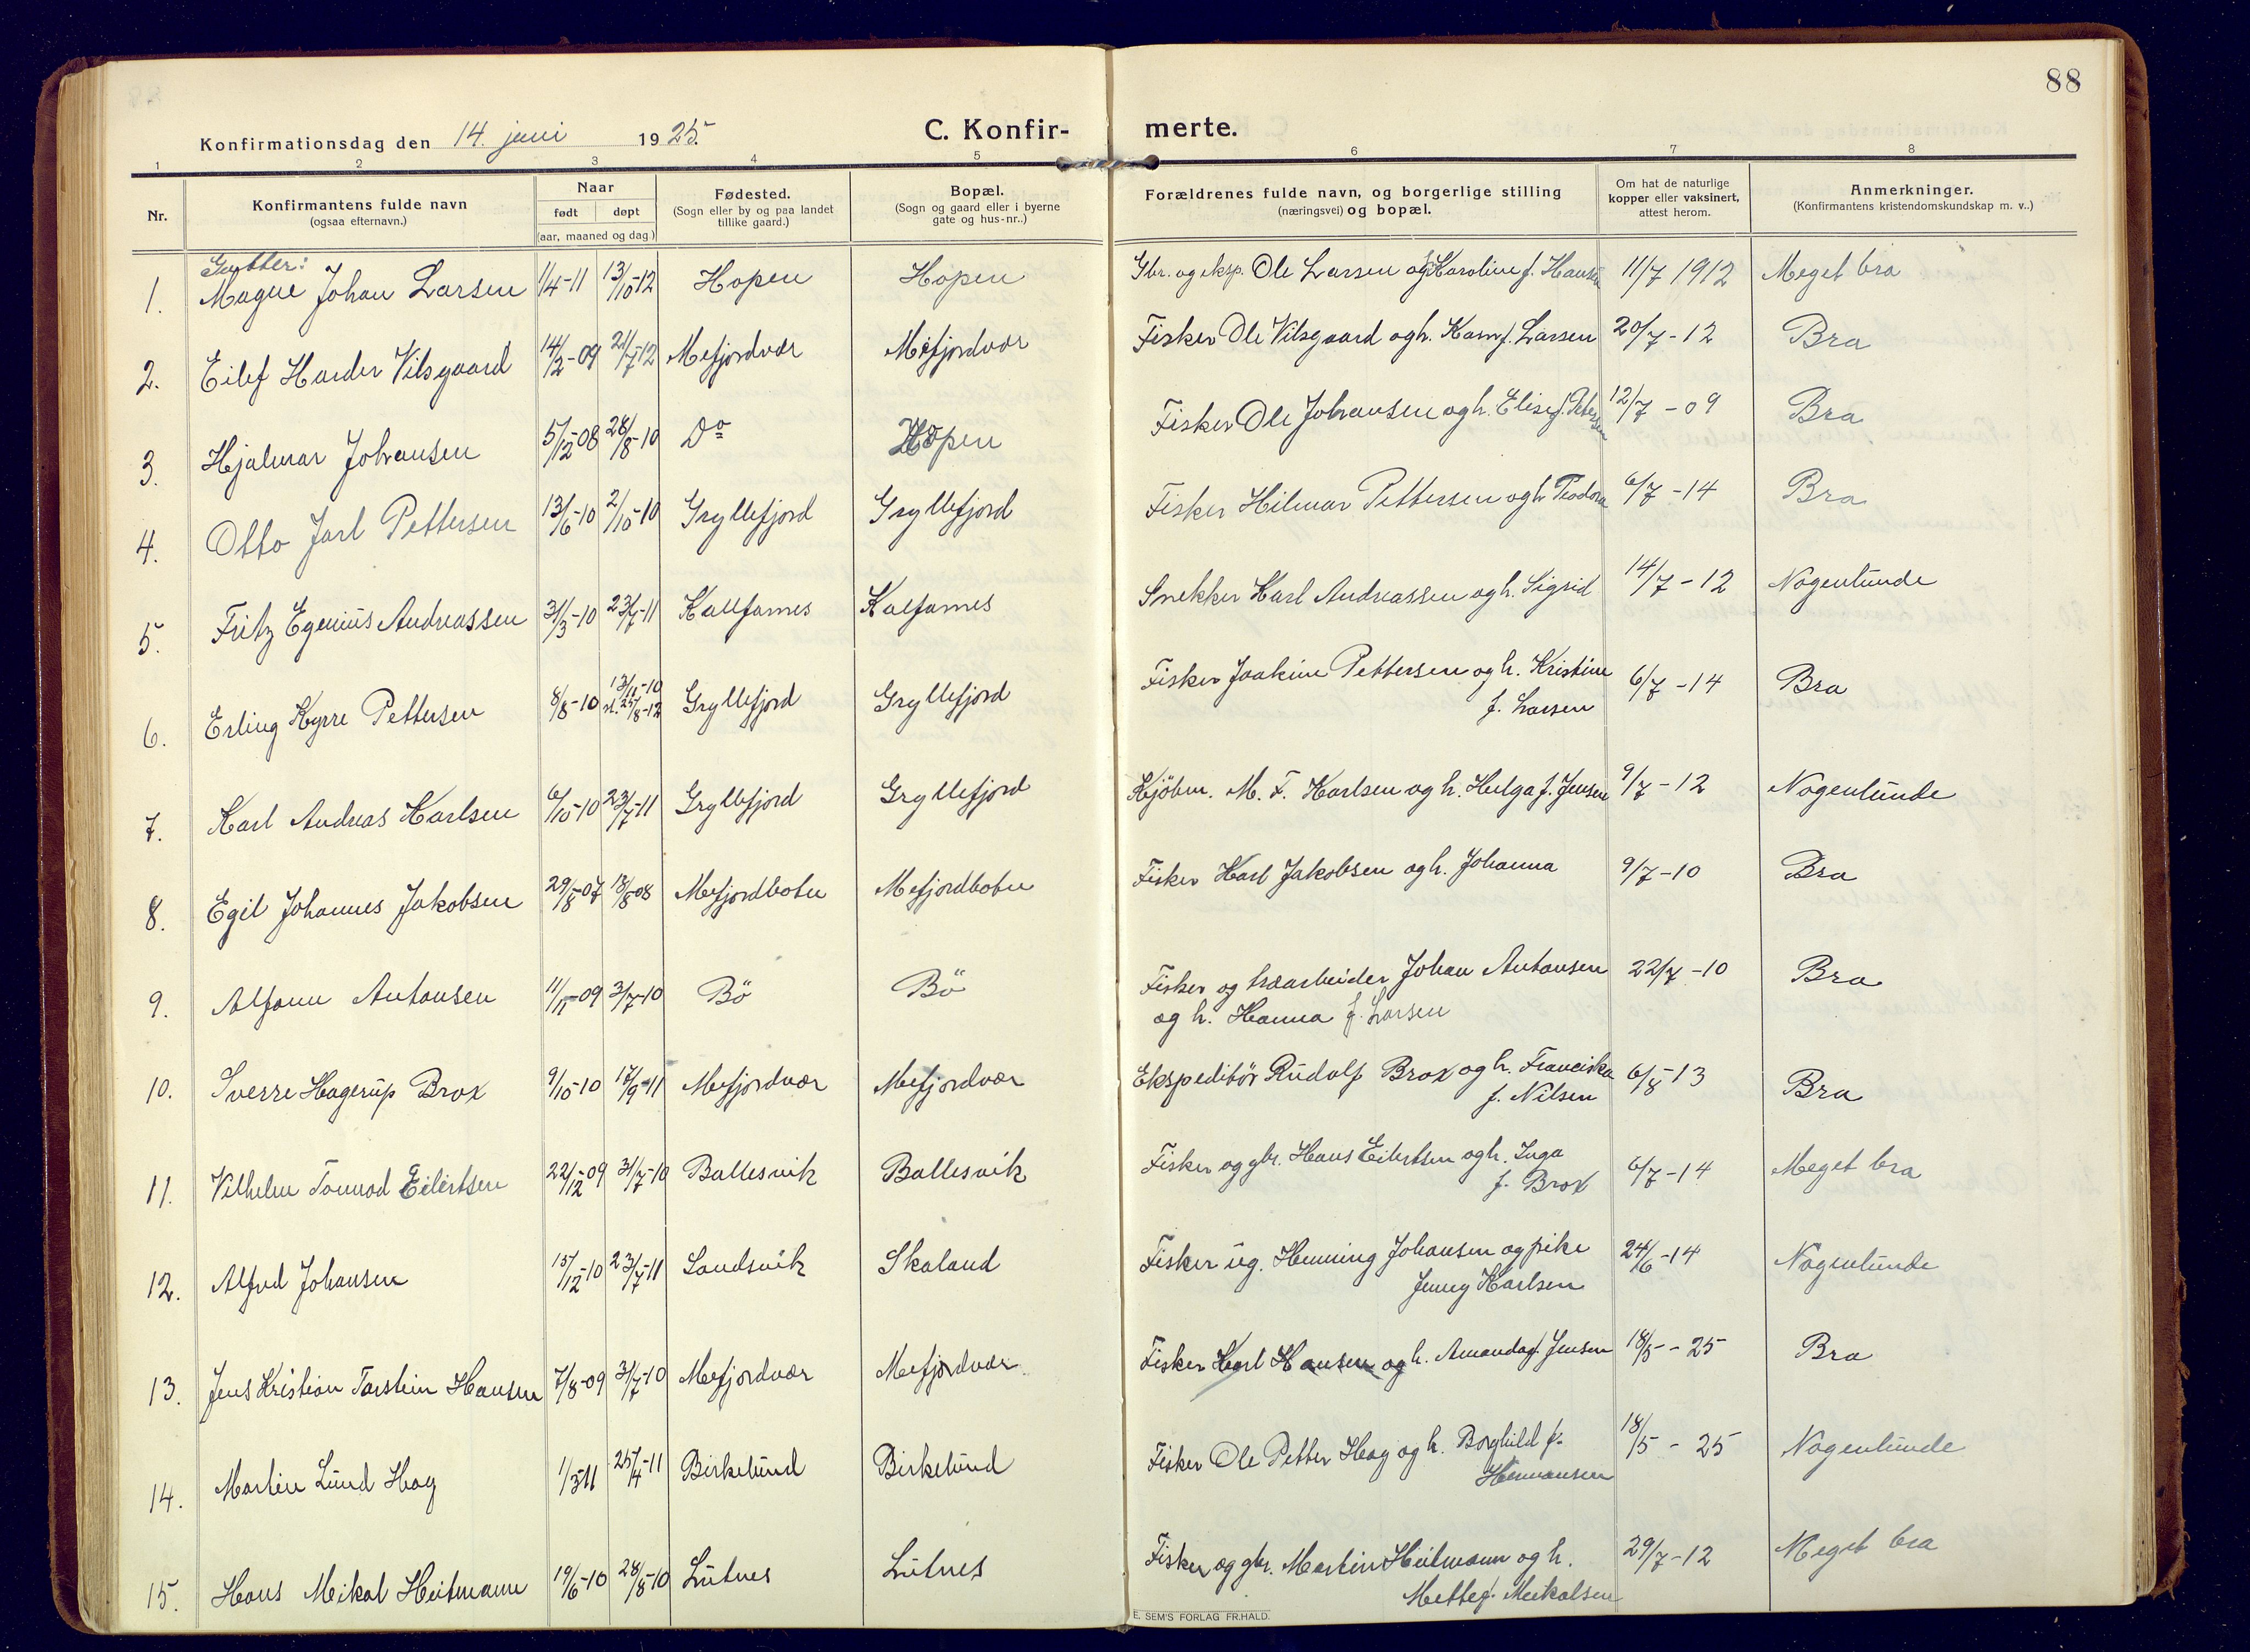 88
Konfirmationsdag den 14. juni 1925.
C. Konfir-
merte.
1 2 3 4 5 6 7 8
Nr.
Konfirmantens fulde navn
(ogsaa efternavn.)
Naar
født døpt
(aar, maaned og dag.)
Fødested.
(Sogn eller by og paa landet
tillike gaard.)
Bopæl.
(Sogn og gaard eller i byerne
gate og hus-nr..)
Forældrenes fulde navn, og borgerlige stilling
(næringsvei) og bopæl.
Om hat de naturlige
kopper eller vaksinert,
attest herom.
Anmerkninger.
(Konfirmantens kristendomskundskap m. v..)
Gutter:
1. Magne Johan Larsen 1/4-11 13/10-12 Hopen Hopen Gbr. og eksp. Ole Larsen og Karoline f. Hansen 11/7 1912 Meget bra
2. Eilef Harder Vilsgaard 14/2-09 21/7-12 Mefjordvær Mefjordvær Fisker Ole Vilsgaard og h. Karn f. Larsen 20/7-12 Bra
3. Hjalmar Johansen 5/12-08 28/8-10 Do Hopen Fisker Ole Johansen og h. Elise f. Petersen 12/7-09 Bra
4. Otto Jarl Pettersen 13/6-10 2/10-10 Gryllefjord Gryllefjord Fisker Hilmar Pettersen og h. Teodora 6/7-14 Bra
5. Fritz Egenius Andreassen 31/3-10 23/7-11 Kalfarnes Kalfarnes Snekker Karl Andreassen og h. Sigrid 14/7-12 Nogenlunde
6. Erling Kyrre Pettersen 8/8-10 13/11-10 st. 25/8-12 Gryllefjord Gryllefjord Fisker Joakim Pettersen og h. Kristine 6/7-14 Bra
f. Larsen
7. Karl Andreas Karlsen 6/10-10 23/7-11 Gryllefjord Gryllefjord Kjöbm. M. F. Karlsen og h. Helga f. Jensen 9/7-12 Nogenlunde
8. Egil Johannes Jakobsen 29/8-07 18/8-08 Mefjordbotn Mefjordbotn Fisker Karl Jakobsen og h. Johanna 9/7-10 Bra
9. Alfonn Antonsen 11/11-09 3/7-10 Bö Bö Fisker og træarbeider Johan Antonsen 22/7-10 Bra
og h. Hanna f. Larsen
10. Sverre Hagerup Brox 9/10-10 17/9-11 Mefjordvær Mefjordvær Ekspeditör Rudolf Brox og h. Franciska 6/8-13 Bra
f. Nilsen
11. Vilhelm Tormod Eilertsen 22/12-09 31/7-10 Ballesvik Ballesvik Fisker og gbr. Hans Eilertsen og h. Inga 6/7-14 Meget bra
f. Brox
12. Alfred Johansen 15/12-10 23/7-11 Sandsvik Skaland Fisker ug. Henning Johansen og pike 24/6-14 Nogenlunde
Jenny Karlsen
13. Jens Kristian Torstein Hansen 7/8-09 31/7-10 Mefjordvær Mefjordvær Fisker Karl Hansen og h. Amanda f. Jensen 18/5-25 Bra
14. Martin Lund Hog 1/3-11 25/4-11 Birkelund Birkelund Fisker Ole Petter Hog og h. Borghild f. 18/5-25 Nogenlunde
Hermansen
15. Hans Meikal Heitmann 19/6-10 28/8-10 Lutnes Lutnes Fisker og gbr. Martin Heitmann og h. 29/7-12 Meget bra
Mette f. Meikalsen
E. SEM'S FORLAG FR.HALD.